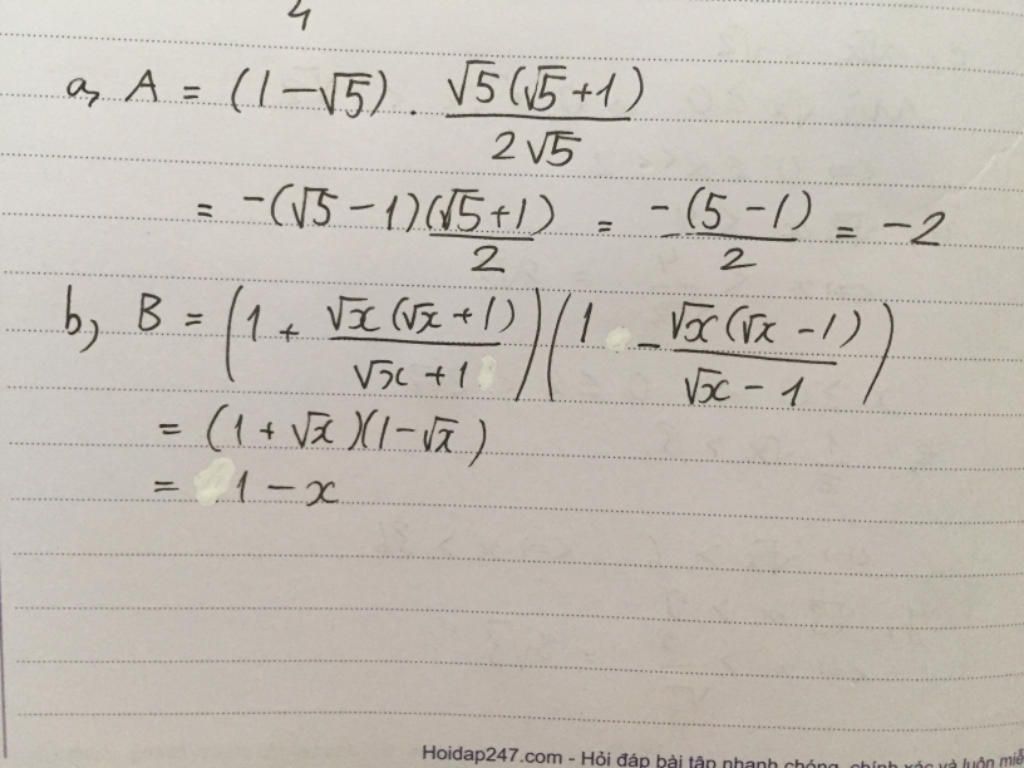 4
a, A = (1 - √5) . √5(√5 + 1) / 2√5
= -(√5 - 1)(√5 + 1) / 2 = -(5 - 1) / 2 = -2
b, B = (1 + √x(√x + 1) / √x + 1)(1 - √x(√x - 1) / √x - 1)
= (1 + √x)(1 - √x)
= 1 - x
Hoidap247.com - Hỏi đáp bài tập nhanh chóng, chính xác và luôn miễ